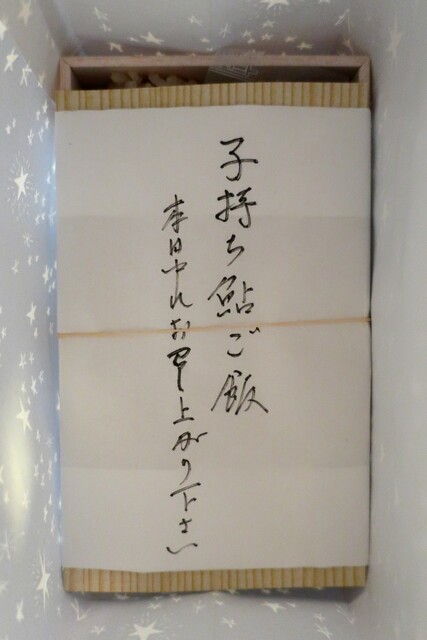 子持ち鮎ご飯
本日中にお早くお上がり下さい